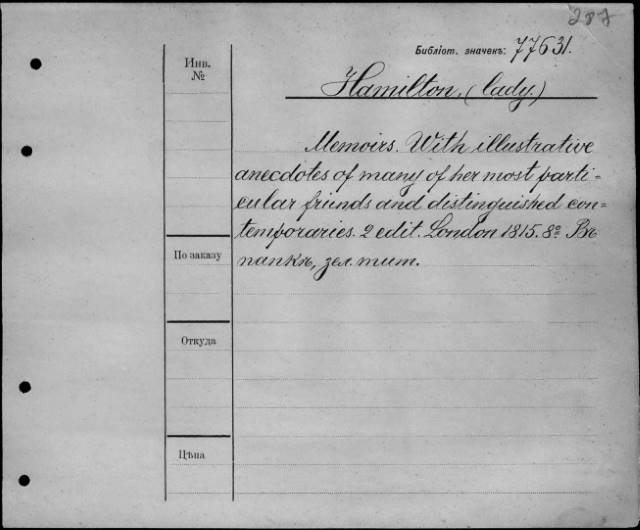 287
Библіот. значекъ: 77631.
Инв.
№
Hamilton, (lady.)
Memoirs. With illustrative
anecdotes of many of her most parti=
cular friends and distinguished con=
temporaries. 2 edit. London 1815. 8º. Въ
папкѣ, зел. тит.
По заказу
Откуда
Цѣна